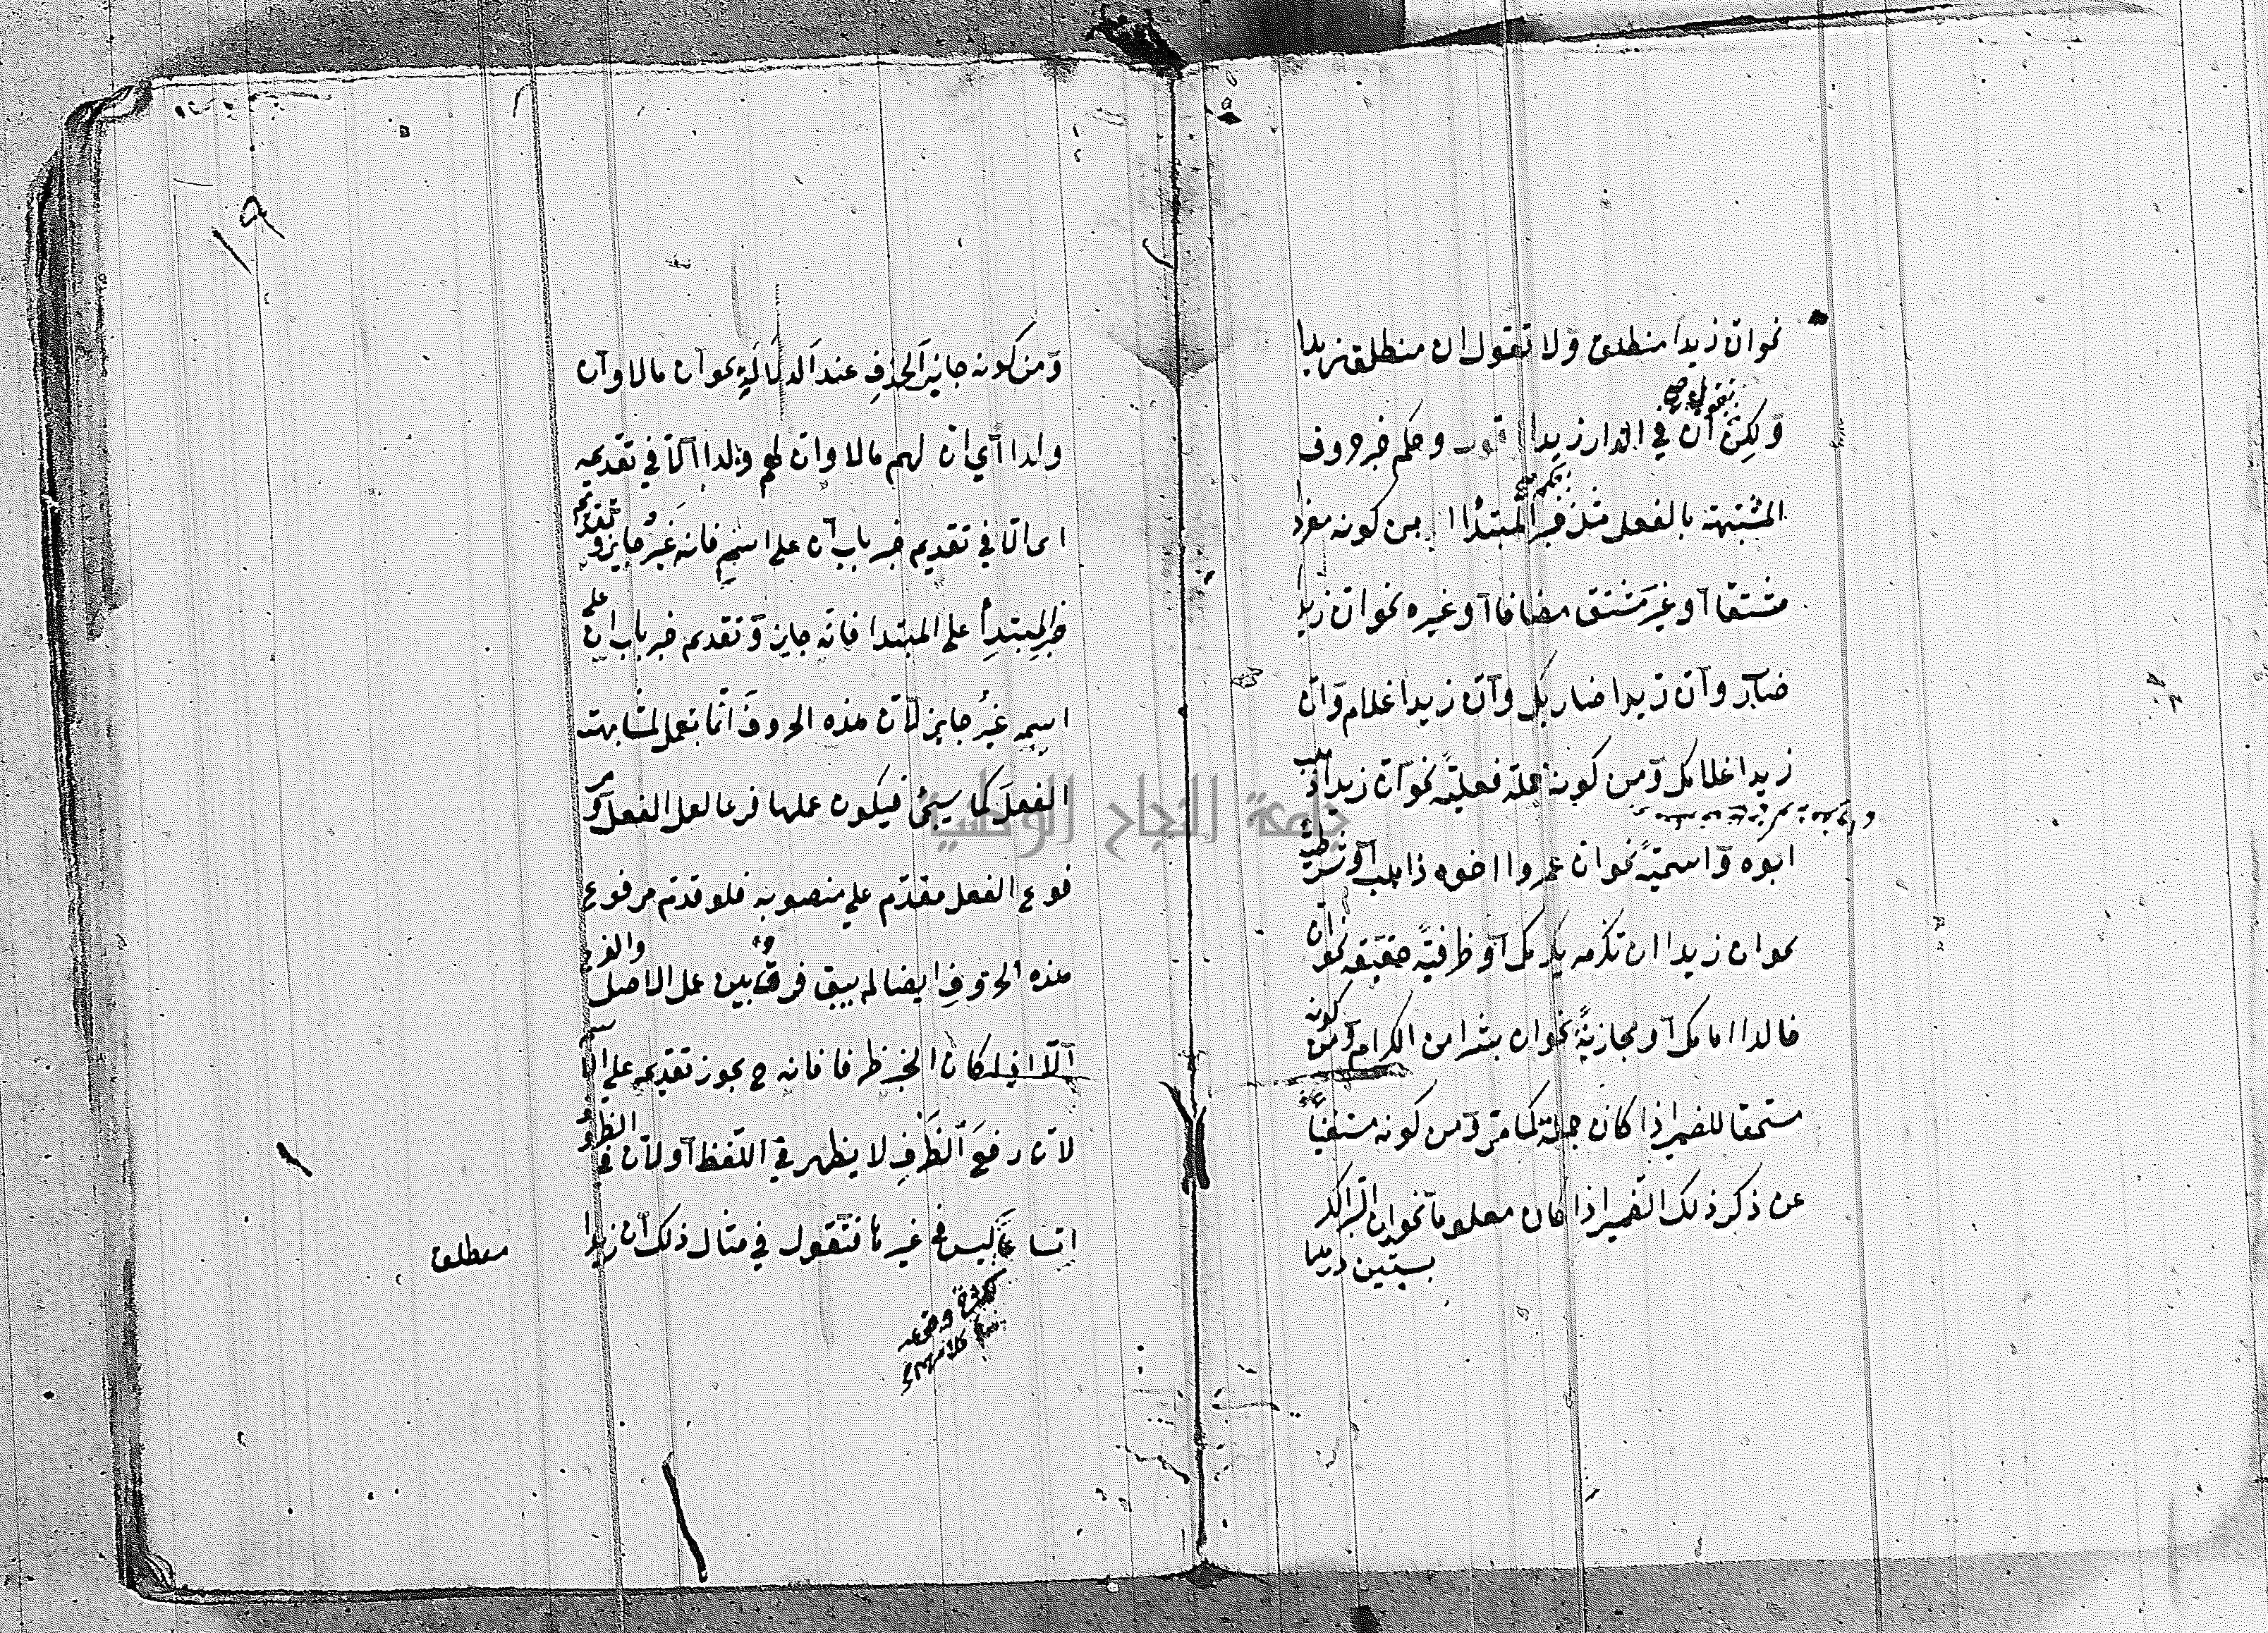 نحو ان زيدا منطلق ولا تقول ان منطلق زيدا
ولكن ان في الدار زيدا تقول وحكم خبر حروف
المشبهة بالفعل مثل خبر المبتدأ من كونه مفردا
مشتقا او غير مشتق مضافا او غيره نحو ان زيدا
ضارب وان زيدا ضاربك وان زيدا غلام وان
زيدا غلامك ومن كونه جملة فعلية نحو ان زيدا ذهب
ابوه واسمية نحو ان عمروا اخوه ذاهب او شرطية
نحو ان زيدا ان تكرمه يكرمك او ظرفية حقيقة نحو ان
خالدا امامك او مجازية نحو ان بشرا من الكرام ومن كونه
مستحقا للضمير اذا كان جملة كما مر ومن كونه مستغنيا
عن ذكر ذلك الضمير اذا كان معلوما نحو ان البر الكر
بستين درهما
١٩
ومن كونه جايز الحذف عند الدلالة نحو ان مالا وان
ولدا اي ان لهم مالا وان لهم ولدا الا في تقديمه
اي الا في تقديم خبر باب ان على اسمه فانه غير جايز وتقديم
خبر المبتدأ على المبتدا فانه جايز وتقديم خبر باب ان على
اسمه غير جايز لان هذه الحروف انما تعمل لمشابهته
الفعل كما سيجئ فيكون عملها فرعا لعمل الفعل ومر
فوع الفعل مقدم على منصوبه فلو قدم مرفوع
هذه الحروف ايضا لم يبق فرق بين عمل الاصل والفرع
الا اذا كان الخبر ظرفا فانه ح يجوز تقديمه على الاسم
لان رفع الظرف لا يظهر في اللفظ او لان في الظروف
اتساعا ليس في غيرها فتقول في مثال ذلك ان زيدا
منطلق
لكثرة وقوعه
في كلامهم
جامعة النجاح الوطنية